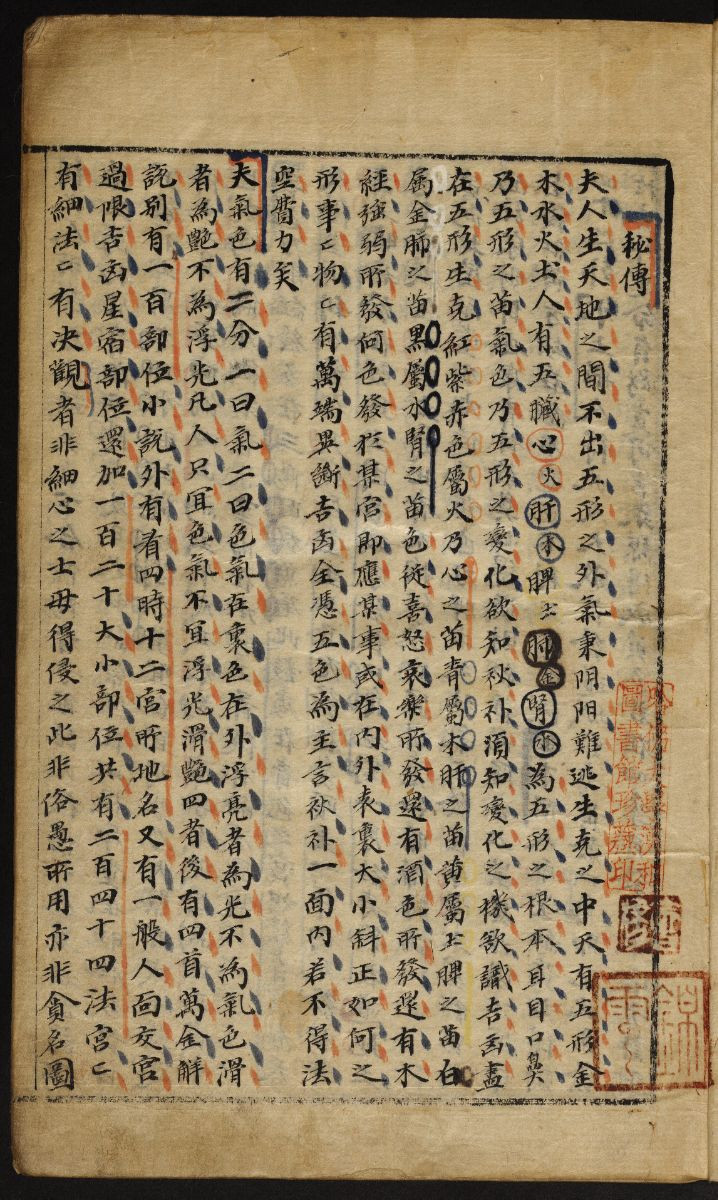 秘傳
夫人生天地之間不出五形之外氣秉阴阳難逃生克之中天有五形金
木水火土人有五臟心火肝木脾土肺金腎水為五形之根本耳目口鼻
乃五形之苗氣色乃五形之變化欲知秋补須知變化之機欲識吉凶盡
在五形生克紅紫赤色屬火乃心之苗青屬木肝之苗黄屬土脾之苗白
屬金肺之苗黑屬水腎之苗色從喜怒哀樂所發還有酒色所發還有木
經強弱所發何色發於某宫即應某事或在内外表裏大小斜正如何之
形事〻物〻有萬端異斷吉凶全憑五色為主言秋补一面内若不得法
空費力矣
夫氣色有二分一曰氣二曰色氣在裏色在外浮亮者為光不為氣色滑
者為艷不為浮光凡人只宜色氣不宜浮光滑艷四者後有四首萬金解
說别有一百部位小說外有看四時十二宫所地名又有一般人面友宫
過限吉凶星宿部位還加一百二十大小部位共有二百四十四法宫〻
有細法〻有决觀者非細心之士毋得侵之此非俗愚所用亦非貪名圖
圖書館珍藏印